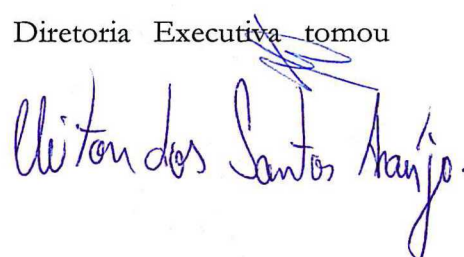 Diretoria Executiva tomou
Cleiton dos Santos Araújo.